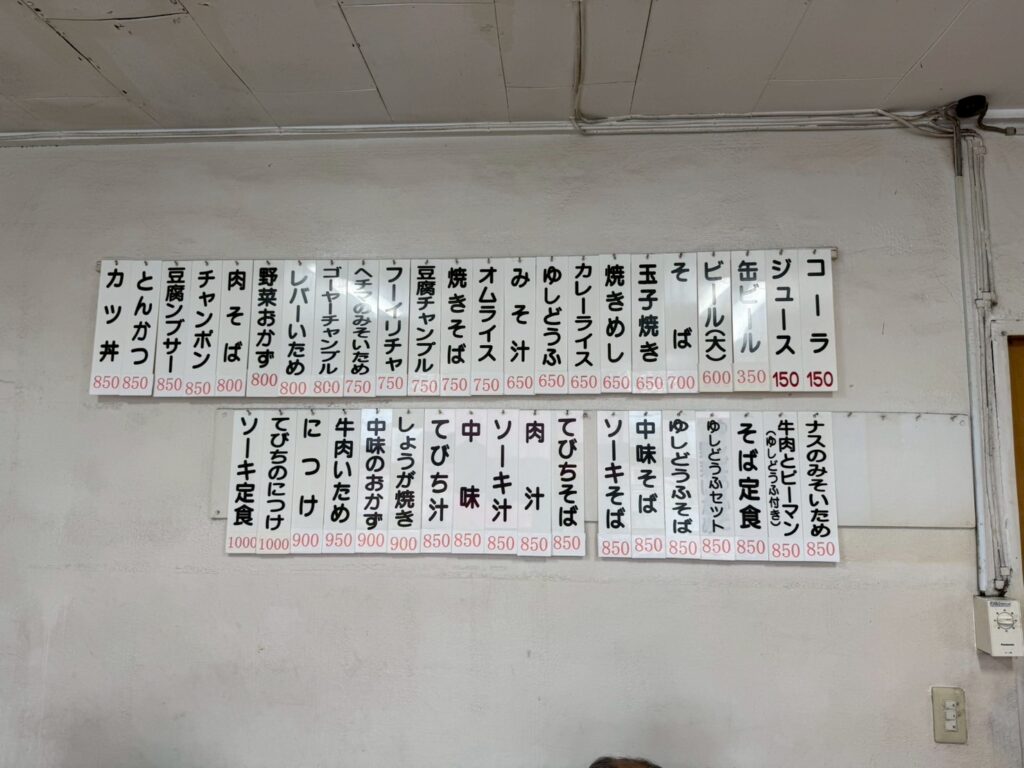 コーラ 150
ジュース 150
缶ビール 350
ビール(大) 600
そば 700
玉子焼き 650
焼きめし 650
カレーライス 650
ゆしどうふ 650
みそ汁 650
オムライス 750
焼きそば 750
豆腐チャンプル 750
フーイリチャ 750
ヘチマのみそいため 750
ゴーヤーチャンプル 800
レバーいため 800
野菜おかず 800
肉そば 800
チャンポン 850
豆腐ンブサー 850
とんかつ 850
カツ丼 850
ナスのみそいため 850
牛肉とピーマン (ゆしどうふ付き) 850
そば定食 850
ゆしどうふセット 850
ゆしどうふそば 850
中味そば 850
ソーキそば 850
てびちそば 850
肉汁 850
ソーキ汁 850
中味 850
てびち汁 850
しょうが焼き 900
中味のおかず 900
牛肉いため 950
につけ 900
てびちのにつけ 1000
ソーキ定食 1000